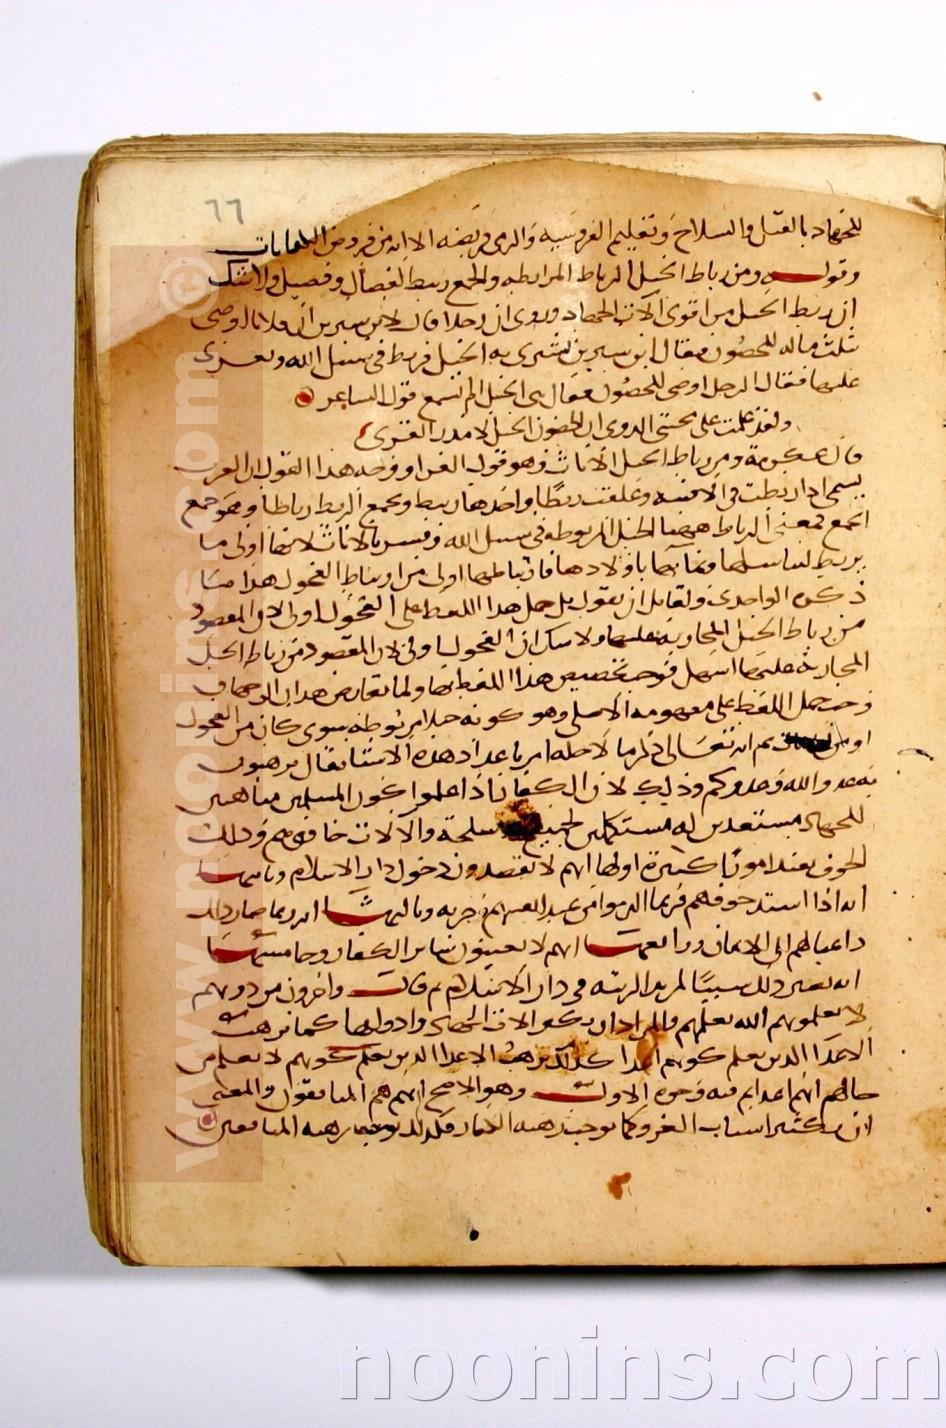 ٦٦
للجهاد بالقتل والسلاح وتعليم الفروسية والرمى فريضه الا انه من فروض الكفايات
وقوله ومن رباط الخيل الرباط المرابطه والجمع ربيط لفصال وفصيل ولا شك
ان ربط الخيل من اقوى الات الجهاد وروى ان رجلا قال لابن سيرين ان فلانا اوصى
بثلث ماله للحصون فقال ابن سيرين يشترى به الخيل فربط فى سبيل الله ويغزى
عليها فقال الرجل اوصى للحصون فقال هى الخيل الم تسمع قول الشاعر
ولقد علمت على تجنبى الردى ان الحصون الخيل لا مدر القرى
قال عكرمة ومن رباط الخيل الاناث وهو قول الفرا ووجه هذا القول ان العرب
يسمى اذا ربطت فى الافنيه وعلفت ربطا واحدها ربيط ويجمع الربط رباطا وهو جمع
الجمع فمعنى الرباط ههنا الخيل المربوطه فى سبيل الله وفسر بالاناث لانها اولى ما
يربط لتناسلها ونمائها باولادها فارتباطها اولى من ارتباط الفحول هذا ما
ذكره الواحدى ولقائل ان يقول بل حمل هذا اللفظ على الفحول اولى لان المقصود
من رباط الخيل المحاربة عليها ولا شك ان الفحول اولى لان المقصود من رباط الخيل
المحاربة عليها اسهل فوجب تخصيص هذا اللفظ بها ولما تعارض هذان الوجهان
وجب حمل اللفظ على مفهومه الاصلى وهو كونه خيلا مربوطه سوى كان من الفحول
او من ثم انه تعالى ذكر ما لاجله امر باعداد هذه الاشيا فقال ترهبون
به عدو الله وعدوكم وذلك لان الكفار اذا علموا كون المسلمين متاهبين
للجهاد مستعدين له مستكملين لجميع الاسلحة والالات خافوهم وذلك
الخوف يفيد امورا كثيرة اولها انهم لا يقصدون دخول دار الاسلام وثانيها
انه اذا اشتد خوفهم فربما التزموا من عند انفسهم جزيه وثالثها انه ربما صار ذلك
داعيا لهم الى الايمان ورابعها انهم لا يعينون سائر الكفار وخامسها
ان يصير ذلك سببا لمزيد الزينه فى دار الاسلام ثم قال واخرين من دونهم
لا تعلمونهم الله يعلمهم والمراد ان تكثير الات الجهاد وادواتها كما ترهب
الاعدا الذين يعلم كونهم اعدا كذلك ترهب الاعدا الذين يعلم كونهم لا نعلم من
حالهم انهم اعدا ثم فيه وجوه الاول وهو الاصح انهم هم المنافقون والمعنى
ان تكثير اسباب الغزو كما يوجب رهبه الكفار فكذلك يوجب رهبه المنافقين
www.noonins.com ©
noonins.com